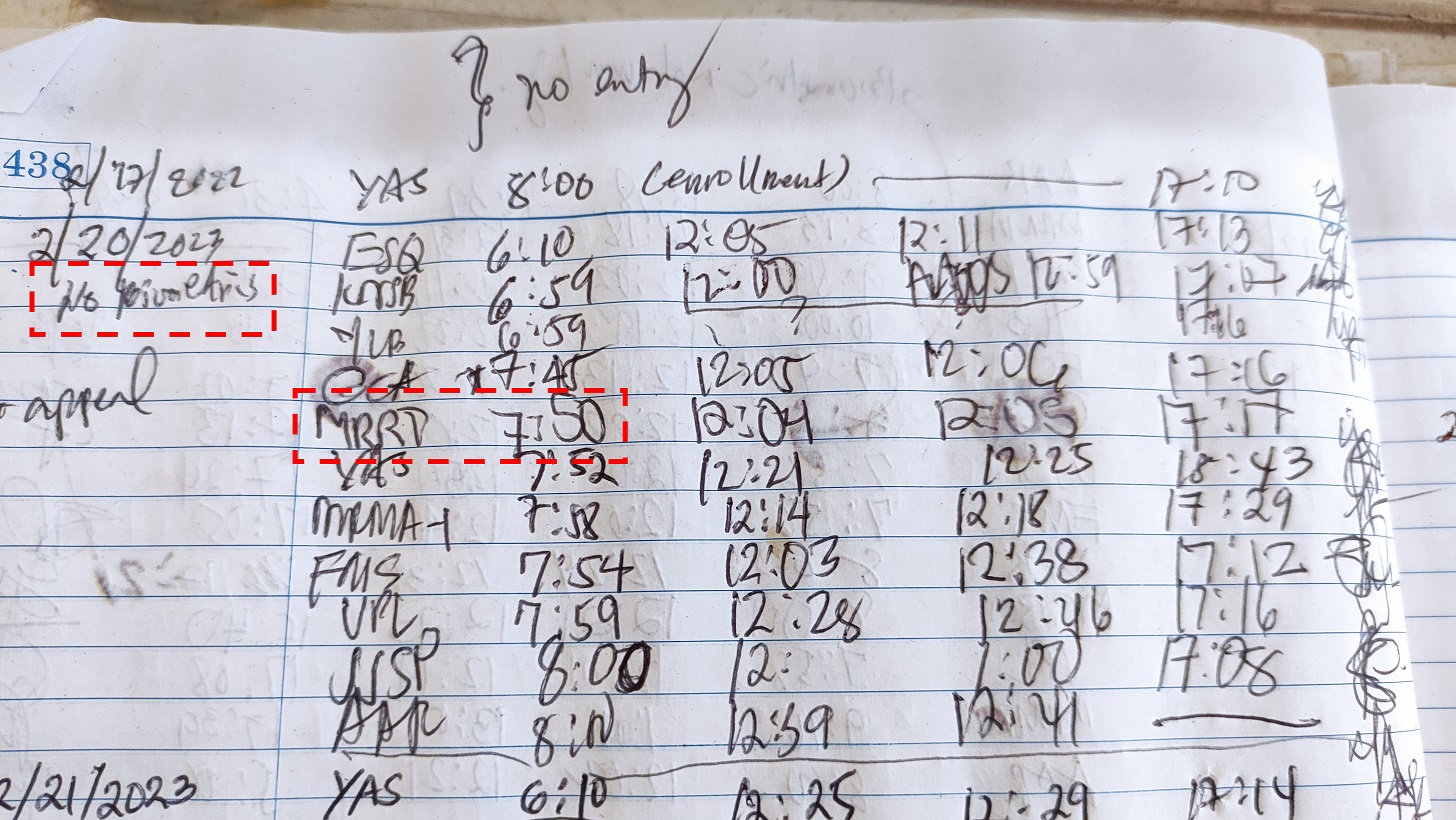 } no entry
438 2/17/2022 YAS 8:00 (enrollment) 17:10
2/20/2023 ESQ 6:10 12:05 12:11 17:13
No biometrics KMSB 6:59 12:00 12:59 17:07
YLB 6:59 17:16
OCA 7:45 12:05 12:06 17:16
appeal
MRRD 7:50 12:04 12:05 17:17
YAS 7:52 12:21 12:25 18:43
MRMA-1 7:58 12:14 12:18 17:29
FMS 7:54 12:03 12:38 17:12
VPL 7:59 12:28 12:46 17:16
JJSP 8:00 12: 1:00 17:08
AAR 12:39 12:41
2/21/2023 YAS 6:10 12:25 12:29 17:14